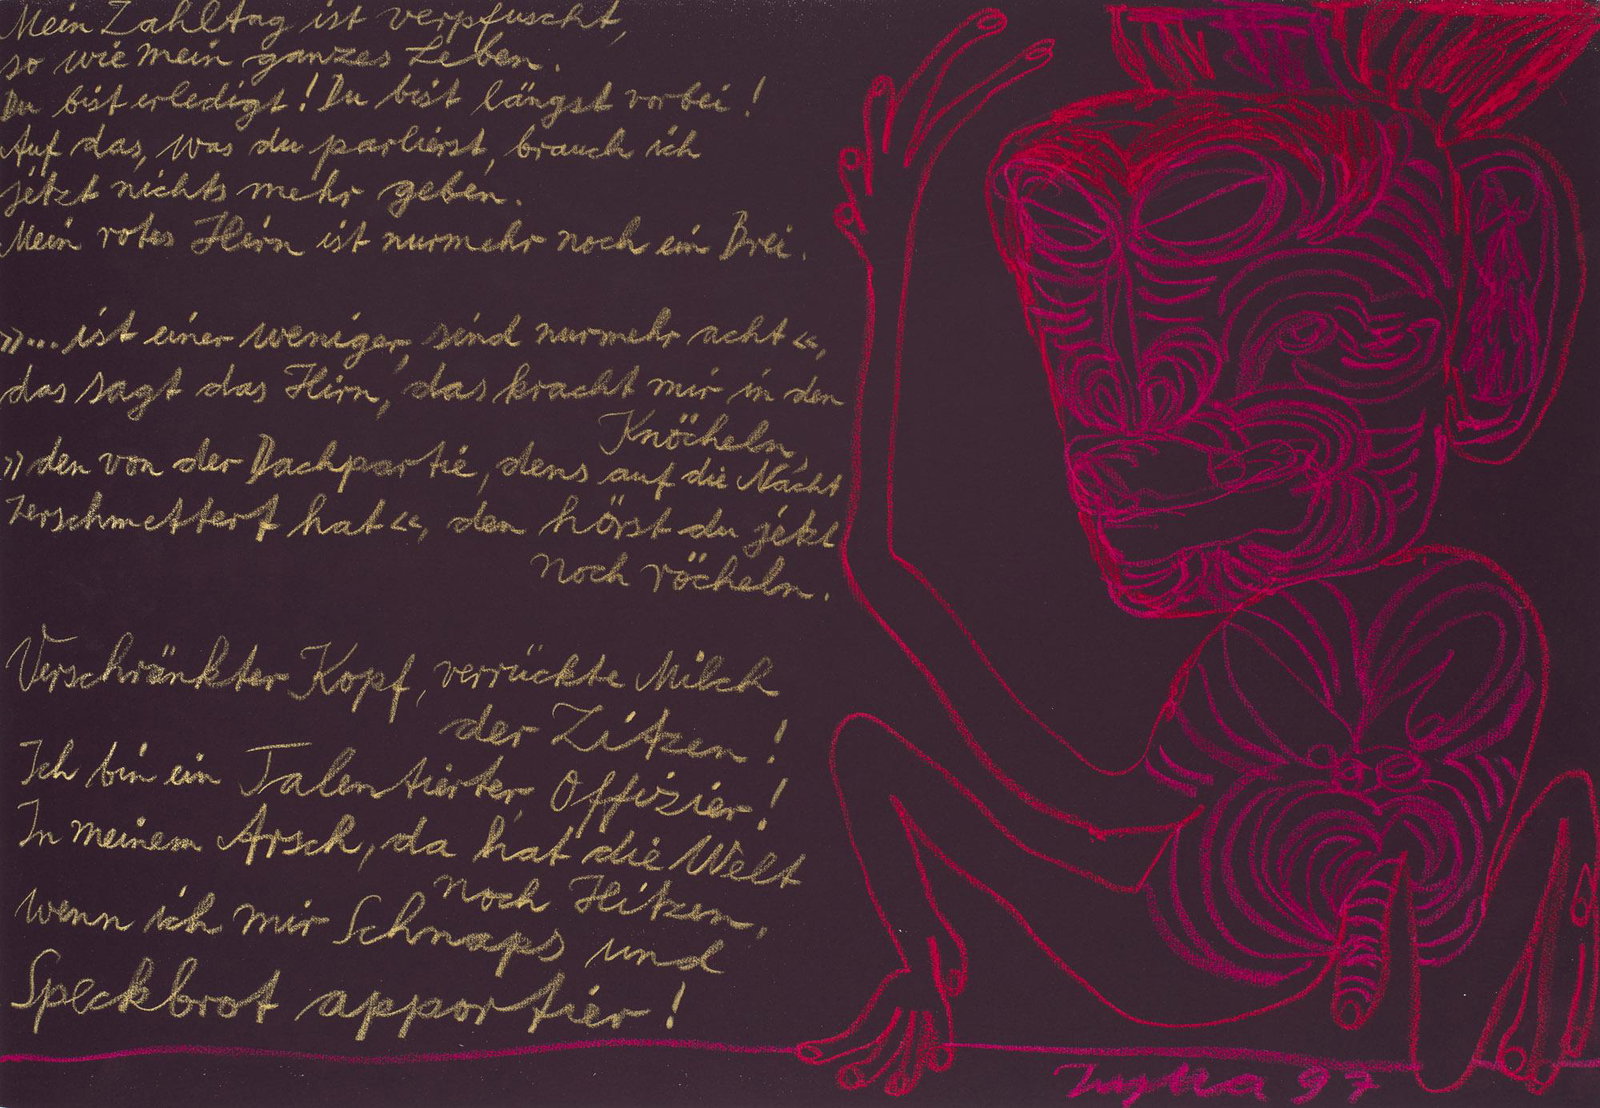 Mein Zahltag ist verpfuscht,
so wie mein ganzes Leben.
Du bist erledigt! Du bist längst vorbei!
Auf das, was du parlierst, brauch ich
jetzt nichts mehr geben.
Mein rotes Hirn ist nurmehr noch ein Brei.
»... ist einer weniger, sind nurmehr acht«,
das sagt das Hirn, das kracht mir in den
Knöcheln,
»den von der Dachpartie, dens auf die Nacht
zerschmettert hat«, den hörst du jetzt
noch röcheln.
Verschränkter Kopf, verrückte Milch
der Zitzen!
Ich bin ein Talentierter Offizier!
In meinem Arsch, da hat die Welt
noch Hitzen,
wenn ich mir Schnaps und
Speckbrot apportier!
97